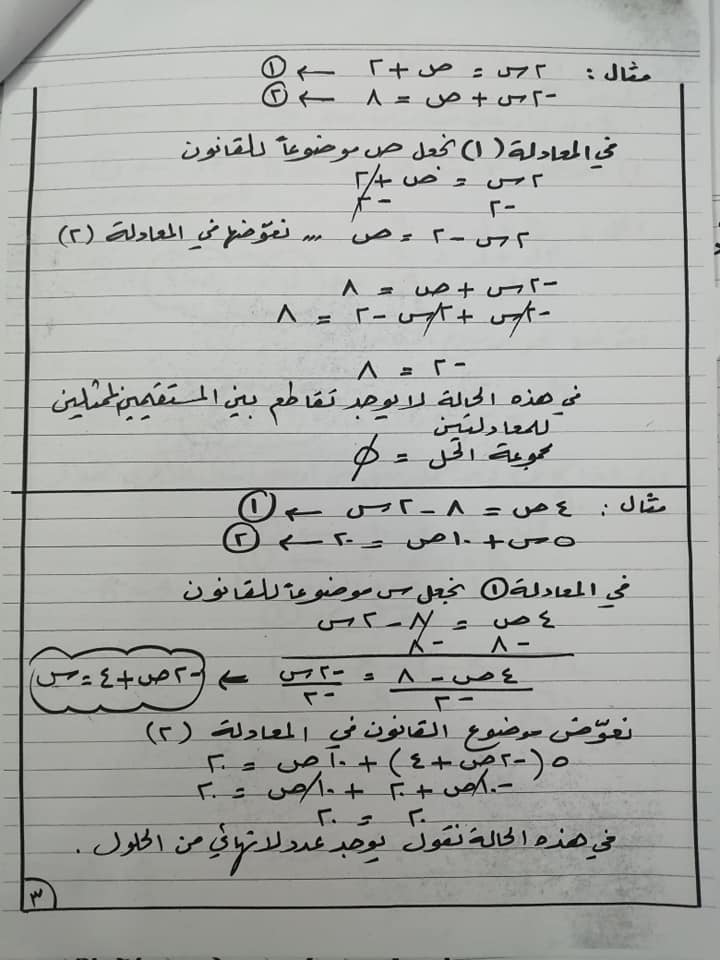 مثال : ٢س = ص + ٢ ← ①
-٢س + ص = ٨ ← ②
في المعادلة (١) نجعل ص موضوعاً للقانون
٢س = ص + ٢
-٢ -٢
٢س - ٢ = ص ,,, نعوّضها في المعادلة (٢)
-٢س + ص = ٨
-٢س + ٢س - ٢ = ٨
-٢ = ٨
في هذه الحالة لا يوجد تقاطع بين المستقيمين الممثلين
للمعادلتين
مجموعة الحل = ∅
مثال : ٤ص = ٨ - ٢س ← ①
٥س + ١٠ص = ٢٠ ← ②
في المعادلة ① نجعل س موضوعاً للقانون
٤ص = ٨ - ٢س
-٨ -٨
٤ص - ٨ / -٢ = -٢س / -٢ ← -٢ص + ٤ = س
نعوّض موضوع القانون في المعادلة (٢)
٥(-٢ص + ٤) + ١٠ص = ٢٠
-١٠ص + ٢٠ + ١٠ص = ٢٠
٢٠ = ٢٠
في هذه الحالة نقول يوجد عدد لا نهائي من الحلول .
٣